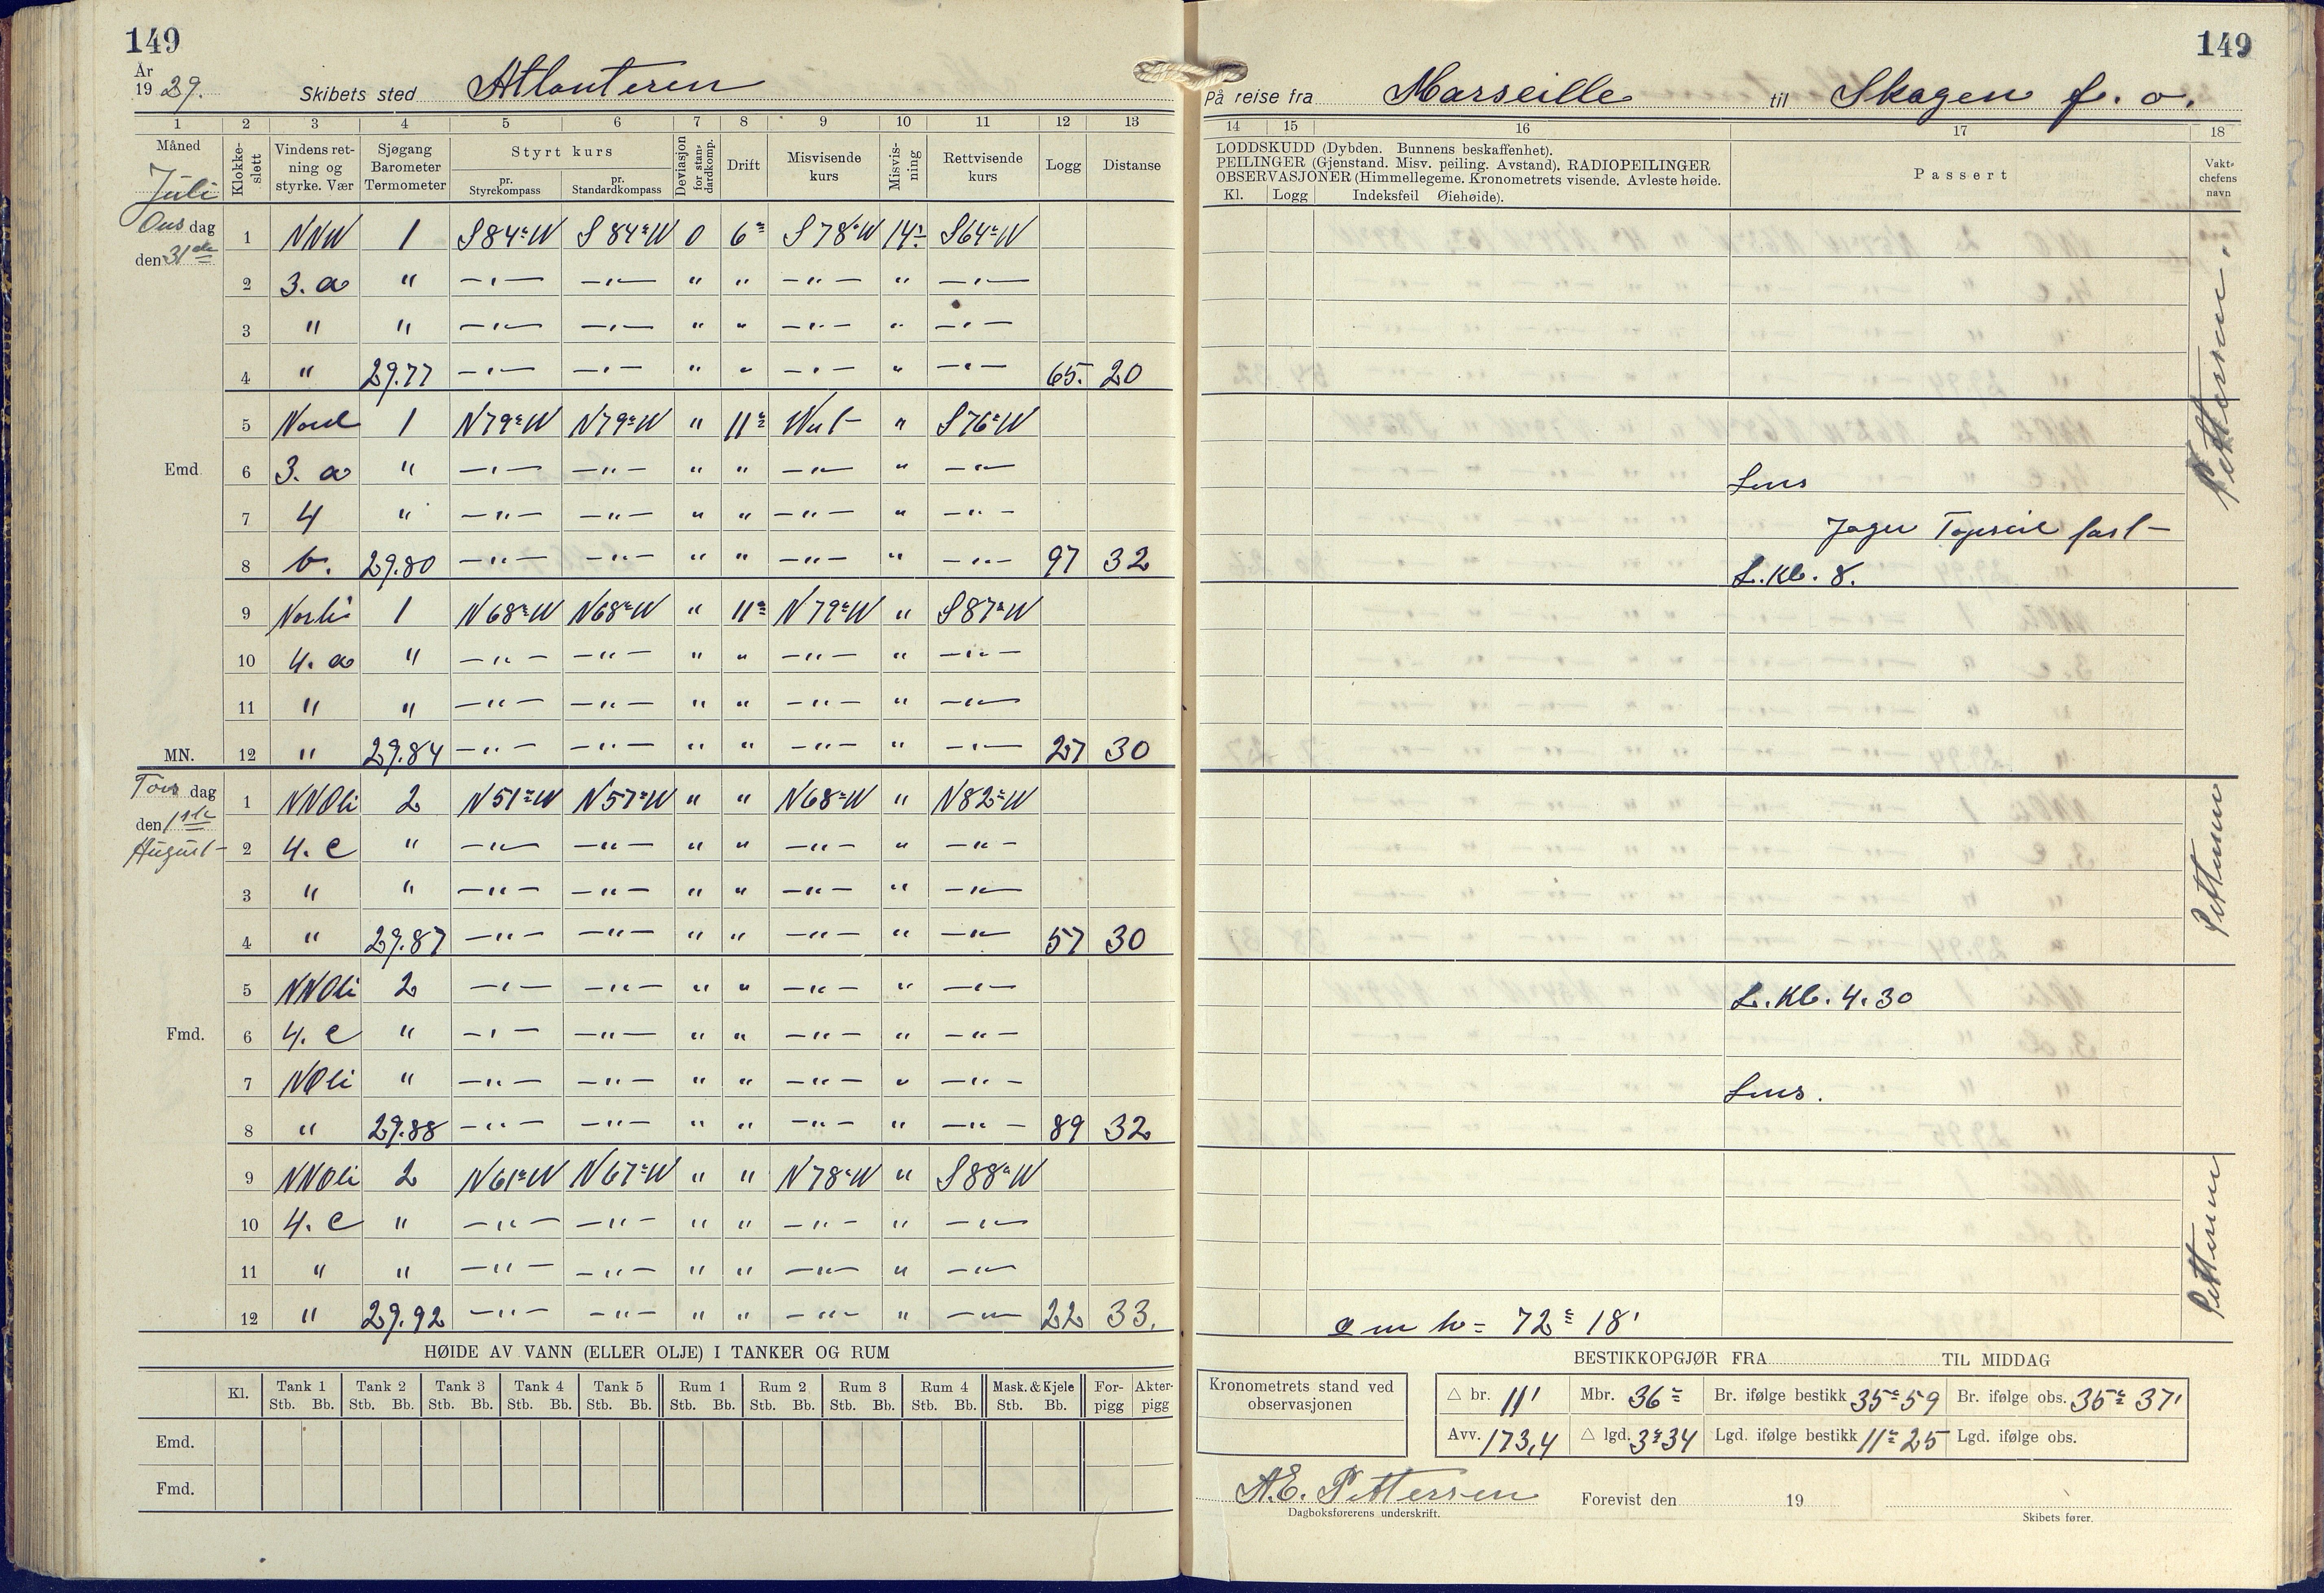 149
149
År 1929.
Skibets sted Atlanteren
På reise fra Marseille til Skagen f. o.
1 2 3 4 5 6 7 8 9 10 11 12 13
14 15 16 17 18
Måned Juli
Klokkeslett
Vindens retning og styrke. Vær
Sjøgang Barometer Termometer
Styrt kurs
pr. Styrekompass
pr. Standardkompass
Deviasjon for standardkomp.
Drift
Misvisende kurs
Misvisning
Rettvisende kurs
Logg
Distanse
LODDSKUDD (Dybden. Bunnens beskaffenhet).
PEILINGER (Gjenstand. Misv. peiling. Avstand). RADIOPEILINGER
OBSERVASJONER (Himmellegeme. Kronometrets visende. Avleste høide.
Kl. Logg Indeksfeil Øiehøide).
Passert
Vakt-chefens navn
Onsdag
den 31de
1 NNW 1 S84°W S84°W 0 6° S78°W 14° S64°W
2 3. a " —"— —"— " " —"— " —"—
3 " " —"— —"— " " —"— " —"—
4 " 29.77 —"— —"— " " —"— " —"— 65. 20
5 Nord 1 N79°W N79°W " 11° West " S76°W
Emd. 6 3. a " —"— —"— " " —"— " —"— Lens
7 4 " —"— —"— " " —"— " —"— Jager Topseil fast
8 b. 29.80 —"— —"— " " —"— " —"— 97 32 L.Kl. 8.
Pettersen.
9 Nordli 1 N68°W N68°W " 11° N79°W " S87°W
10 4. a " —"— —"— " " —"— " —"—
11 " " —"— —"— " " —"— " —"—
MN. 12 " 29.84 —"— —"— " " —"— " —"— 27 30
Torsdag
den 1ste
August
1 NNOli 2 N51°W N57°W " " N68°W " N82°W
2 4. c " —"— —"— " " —"— " —"—
3 " " —"— —"— " " —"— " —"—
4 " 29.87 —"— —"— " " —"— " —"— 57 30
Pettersen
5 NNOli 2 —"— —"— " " —"— " —"— L.Kl. 4.30
Fmd. 6 4. c " —"— —"— " " —"— " —"—
7 NOli " —"— —"— " " —"— " —"— Lens.
8 " 29.88 —"— —"— " " —"— " —"— 89 32
9 NNOli 2 N61°W N67°W " " N78°W " S88°W
10 4. c " —"— —"— " " —"— " —"—
11 " " —"— —"— " " —"— " —"—
12 " 29.92 —"— —"— " " —"— " —"— 22 33.
m h = 72° 18'
Pettersen
HØIDE AV VANN (ELLER OLJE) I TANKER OG RUM
Kl. Tank 1 Tank 2 Tank 3 Tank 4 Tank 5 Rum 1 Rum 2 Rum 3 Rum 4 Mask. & Kjele For-pigg Akter-pigg
Stb. Bb. Stb. Bb. Stb. Bb. Stb. Bb. Stb. Bb. Stb. Bb. Stb. Bb. Stb. Bb. Stb. Bb. Stb. Bb.
Emd.
Fmd.
BESTIKKOPGJØR FRA TIL MIDDAG
Kronometrets stand ved observasjonen
△ br. 11' Mbr. 36° Br. ifølge bestikk 35° 59 Br. ifølge obs. 35° 37'
Avv. 173,4 △ lgd. 3° 34 Lgd. ifølge bestikk 11° 25 Lgd. ifølge obs.
A.E. Pettersen
Dagboksførerens underskrift.
Forevist den 19
Skibets fører.